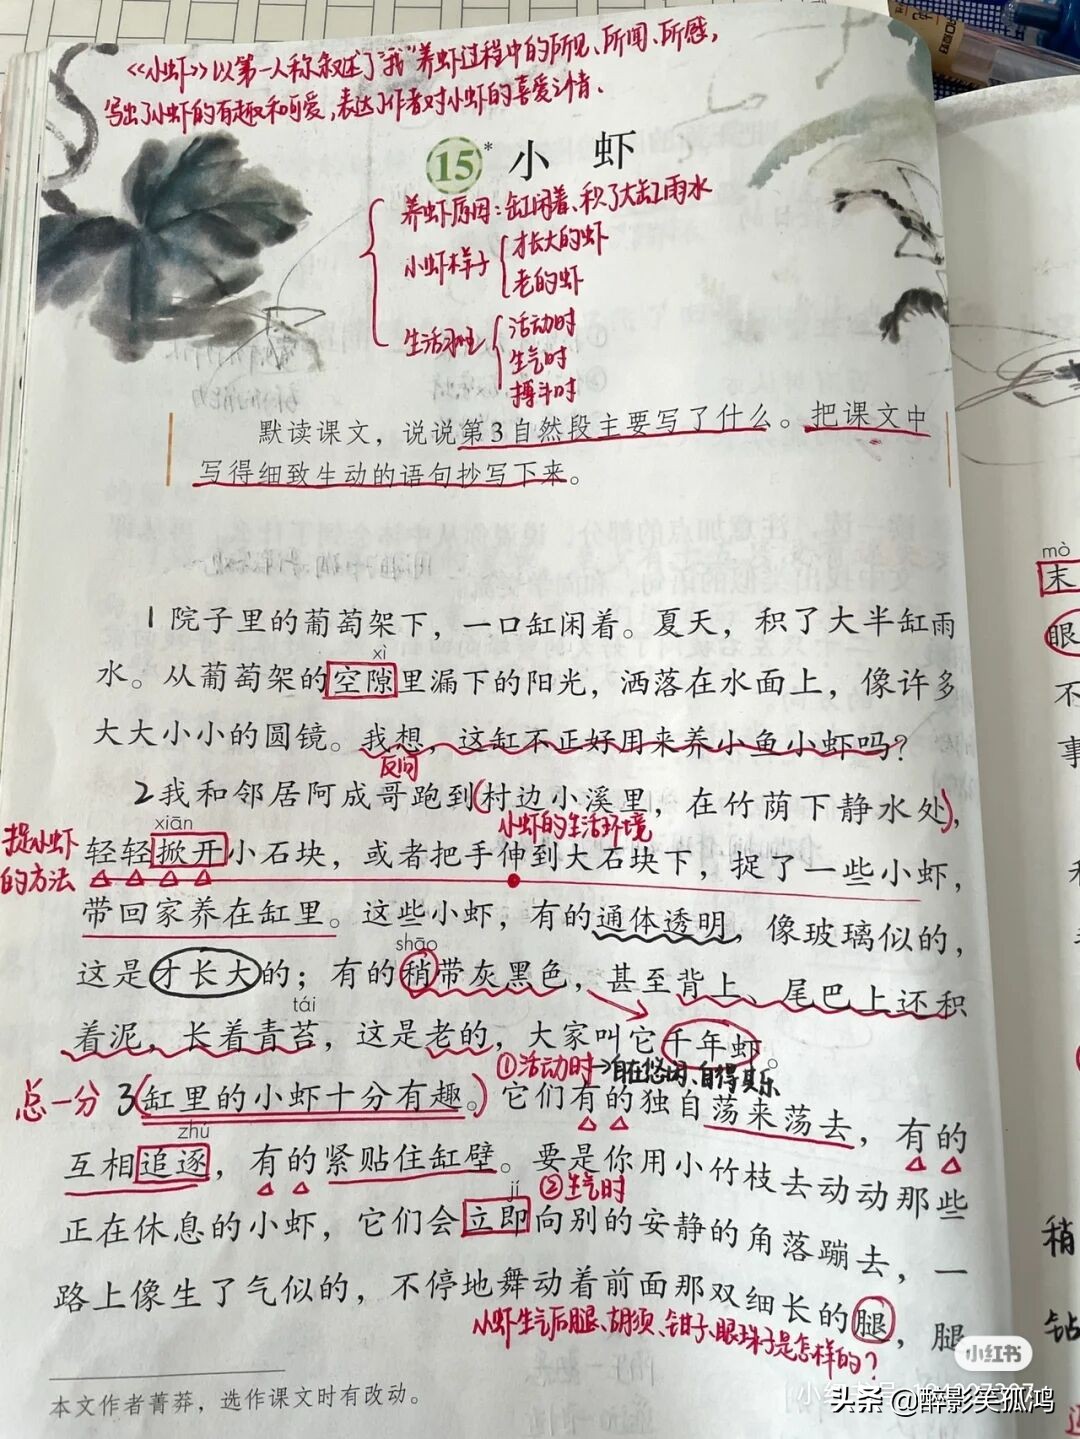 《小虾》以第一人称叙述了"我"养虾过程中的所见、所闻、所感,
写出了小虾的有趣和可爱,表达了作者对小虾的喜爱之情.
15* 小 虾
养虾原因:缸闲着、积了大缸雨水
小虾样子 才长大的虾
老的虾
生活习性 活动时
生气时
搏斗时
默读课文，说说第3自然段主要写了什么。把课文中
写得细致生动的语句抄写下来。
1院子里的葡萄架下，一口缸闲着。夏天，积了大半缸雨
xì
水。从葡萄架的空隙里漏下的阳光，洒落在水面上，像许多
大大小小的圆镜。我想，这缸不正好用来养小鱼小虾吗？
反问
2我和邻居阿成哥跑到(村边小溪里，在竹荫下静水处)，
小虾的生活环境
捉小虾
的方法
xiān
轻轻掀开小石块，或者把手伸到大石块下，捉了一些小虾，
带回家养在缸里。这些小虾，有的通体透明，像玻璃似的，
shāo
这是才长大的；有的稍带灰黑色，甚至背上、尾巴上还积
tái
着泥，长着青苔，这是老的，大家叫它千年虾。
①活动时→自在悠闲、自得其乐
总一分 3(缸里的小虾十分有趣。)它们有的独自荡来荡去，有的
zhú
互相追逐，有的紧贴住缸壁。要是你用小竹枝去动动那些
②生气时
jí
正在休息的小虾，它们会立即向别的安静的角落蹦去，一
路上像生了气似的，不停地舞动着前面那双细长的腿，腿
小虾生气后腿、胡须、钳子、眼珠子是怎样的?
本文作者菁莽，选作课文时有改动。
mò
末
眼
不
事
稍
钻
小红书
头条 @醉影笑孤鸿